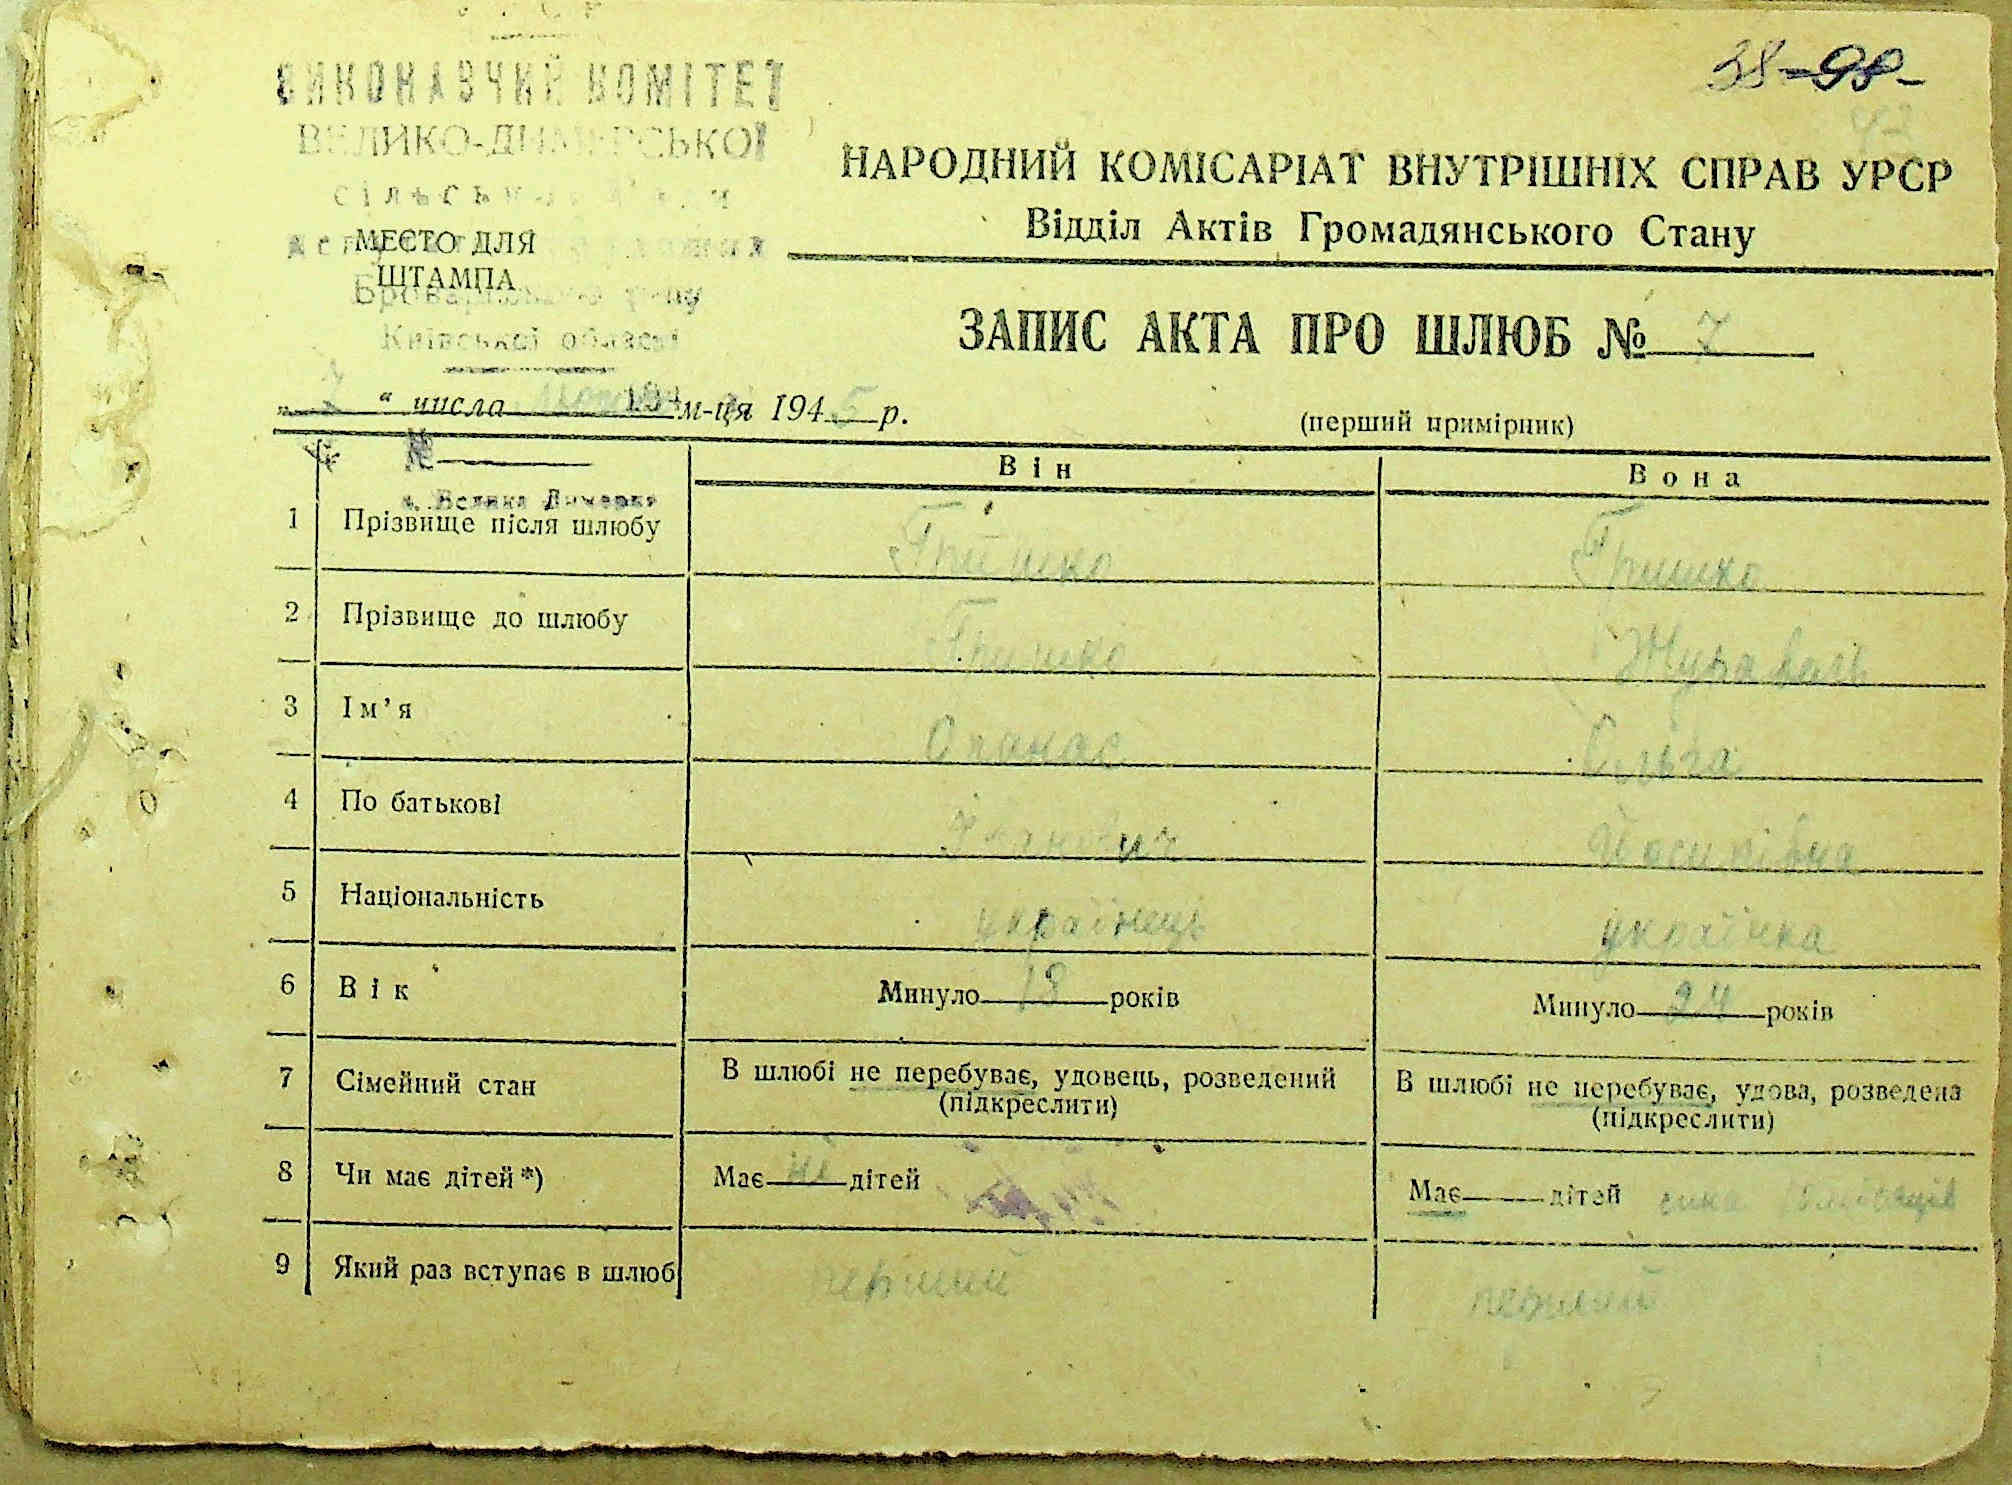 ВИКОНАВЧИЙ КОМІТЕТ
ВЕЛИКО-ДИМЕРСЬКОЇ
Броварського р-ну
Київської області
МЕСТО ДЛЯ
ШТАМПА
38-98-
НАРОДНИЙ КОМІСАРІАТ ВНУТРІШНІХ СПРАВ УРСР
Відділ Актів Громадянського Стану
ЗАПИС АКТА ПРО ШЛЮБ № 7
„ “ числа м-ця 1945 р.
(перший примірник)
с. Велика Димерка
Він Вона
1 Прізвище після шлюбу Гришко Гришко
2 Прізвище до шлюбу Гришко Журавель
3 Ім’я Опанас Ольга
4 По батькові Йосипівна
5 Національність українець українка
6 Вік Минуло 18 років Минуло 24 років
7 Сімейний стан В шлюбі не перебуває, удовець, розведений (підкреслити) В шлюбі не перебуває, удова, розведена (підкреслити)
8 Чи має дітей*) Має ні дітей Має дітей сина місяців
9 Який раз вступає в шлюб перший перший